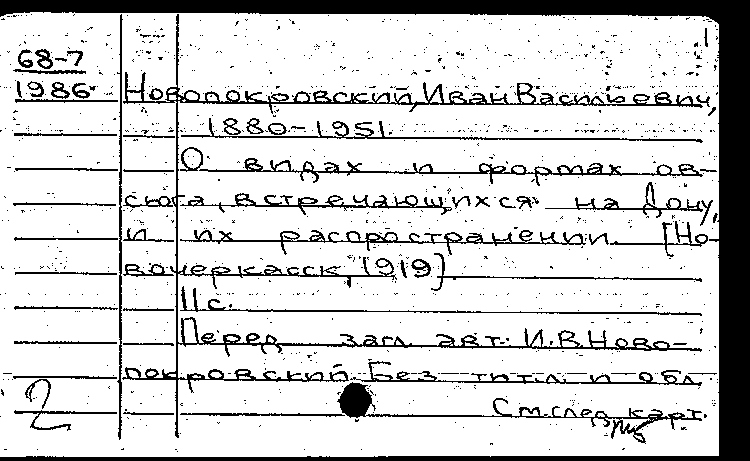 68-7
1986
Новопокровский, Иван Васильевич,
1880-1951.
О видах и формах ов-
сюга, встречающихся на Дону,
и их распространении. [Но-
вочеркасск, 1919].
11 с.
Перед загл. авт.: И.В. Ново-
покровский. Без тит. л. и обл.
2
См. след. карт.